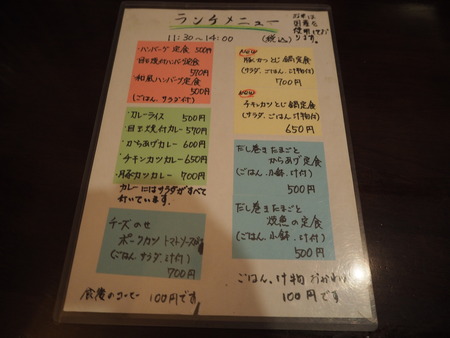 ランチメニュー
11:30〜14:00
(税込)
お米は
国産を
使用しており
ます。
・ハンバーグ定食 500円
・目玉焼付ハンバーグ定食
570円
・和風ハンバーグ定食
500円
(ごはん、サラダ付)
・カレーライス 500円
・目玉焼付カレー 570円
・からあげカレー 600円
・チキンカツカレー 650円
・豚カツカレー 700円
カレーにはサラダがすべて
付いています。
チーズのせ
ポークカツ トマトソース
(ごはん、サラダ、汁付)
700円
食後のコーヒー 100円です
NEW
豚カツとじ鍋定食
(サラダ、ごはん、汁物付)
700円
NEW
チキンカツとじ鍋定食
(サラダ、ごはん、汁物付)
650円
だし巻きたまごと
からあげ定食
(ごはん、小鉢、汁付)
500円
だし巻きたまごと
焼魚の定食
(ごはん、小鉢、汁付)
500円
ごはん、汁物 おかわり
100円です